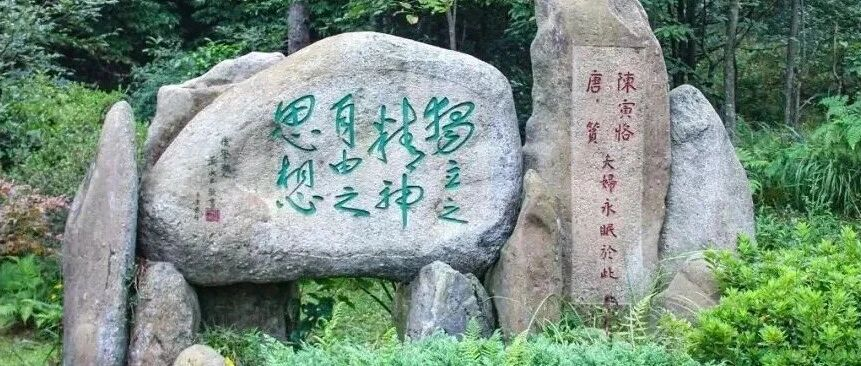 陳寅恪
唐.篔
夫婦永眠於此
獨立之
精神
自由之
思想